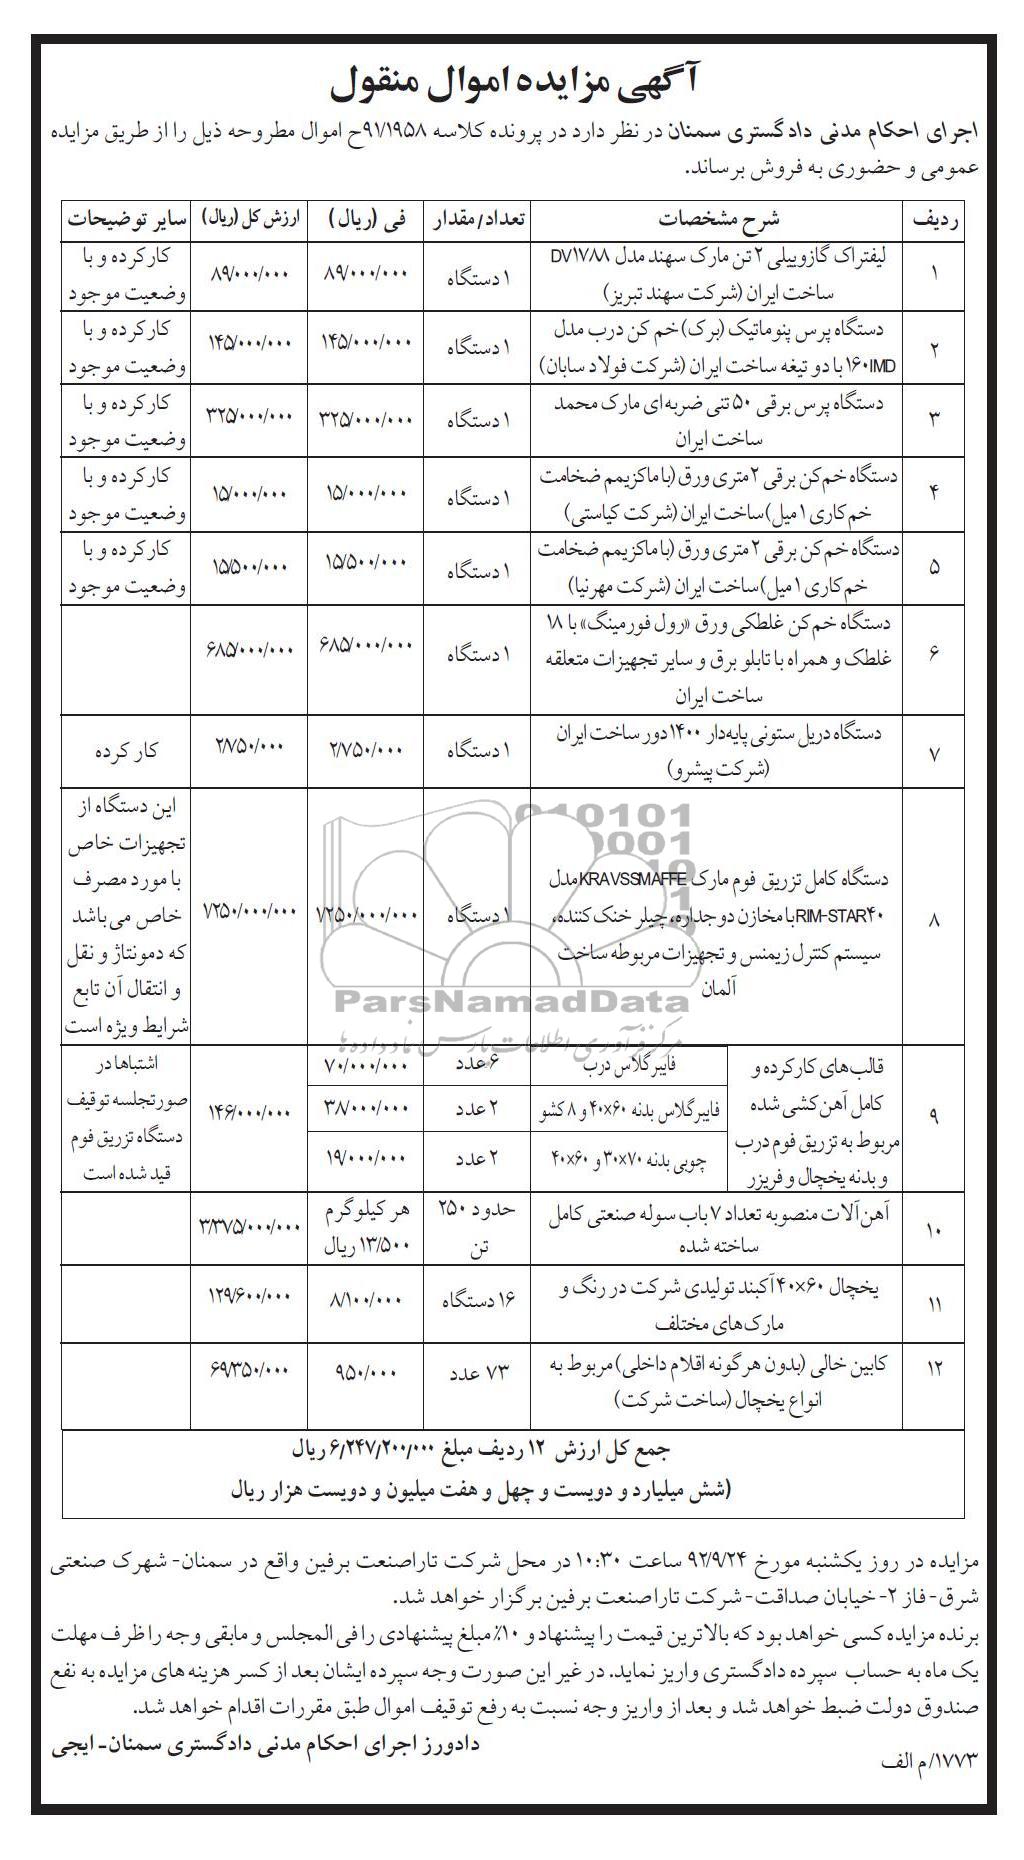 آگهی مزایده اموال منقول
اجرای احکام مدنی دادگستری سمنان در نظر دارد در پرونده کلاسه ۹۱/۱۹۵۸ح اموال مطروحه ذیل را از طریق مزایده
عمومی و حضوری به فروش برساند.
ردیف شرح مشخصات تعداد/مقدار فی (ریال) ارزش کل (ریال) سایر توضیحات
۱ لیفتراک گازوییلی ۲ تن مارک سهند مدل DV۱۷۸۸ ۱ دستگاه ۸۹/۰۰۰/۰۰۰ ۸۹/۰۰۰/۰۰۰ کارکرده و با
ساخت ایران (شرکت سهند تبریز) وضعیت موجود
۲ دستگاه پرس پنوماتیک (برک) خم کن درب مدل ۱ دستگاه ۱۴۵/۰۰۰/۰۰۰ ۱۴۵/۰۰۰/۰۰۰ کارکرده و با
۱۶۰IMD با دو تیغه ساخت ایران (شرکت فولاد سابان) وضعیت موجود
۳ دستگاه پرس برقی ۵۰ تنی ضربه‌ای مارک محمد ۱ دستگاه ۳۲۵/۰۰۰/۰۰۰ ۳۲۵/۰۰۰/۰۰۰ کارکرده و با
ساخت ایران وضعیت موجود
۴ دستگاه خم‌کن برقی ۲ متری ورق (با ماکزیمم ضخامت ۱ دستگاه ۱۵/۰۰۰/۰۰۰ ۱۵/۰۰۰/۰۰۰ کارکرده و با
خم‌کاری ۱ میل) ساخت ایران (شرکت کیاستی) وضعیت موجود
۵ دستگاه خم‌کن برقی ۲ متری ورق (با ماکزیمم ضخامت ۱ دستگاه ۱۵/۵۰۰/۰۰۰ ۱۵/۵۰۰/۰۰۰ کارکرده و با
خم‌کاری ۱ میل) ساخت ایران (شرکت مهرنیا) وضعیت موجود
۶ دستگاه خم‌کن غلطکی ورق «رول فورمینگ» با ۱۸ ۱ دستگاه ۶۸۵/۰۰۰/۰۰۰ ۶۸۵/۰۰۰/۰۰۰
غلطک و همراه با تابلو برق و سایر تجهیزات متعلقه
ساخت ایران
۷ دستگاه دریل ستونی پایه‌دار ۱۴۰۰ دور ساخت ایران ۱ دستگاه ۲/۷۵۰/۰۰۰ ۲/۷۵۰/۰۰۰ کار کرده
(شرکت پیشرو)
۸ دستگاه کامل تزریق فوم مارک KRAVSSMAFFE مدل
RIM-STAR۴۰ با مخازن دوجداره، چیلر خنک کننده،
سیستم کنترل زیمنس و تجهیزات مربوطه ساخت
آلمان
۱ دستگاه ۱/۲۵۰/۰۰۰/۰۰۰ ۱/۲۵۰/۰۰۰/۰۰۰
این دستگاه از
تجهیزات خاص
با مورد مصرف
خاص می‌باشد
که دمونتاژ و نقل
و انتقال آن تابع
شرایط ویژه است
010101
0001
10
1
ParsNamadData
مرکز فرآوری اطلاعات پارس نماد داده‌ها
۹ قالب‌های کارکرده و
کامل آهن‌کشی شده
مربوط به تزریق فوم درب
و بدنه یخچال و فریزر
فایبرگلاس درب ۶ عدد ۷۰/۰۰۰/۰۰۰
فایبرگلاس بدنه ۶۰×۴۰ و ۸ کشو ۲ عدد ۳۸/۰۰۰/۰۰۰
چوبی بدنه ۷۰×۳۰ و ۶۰×۴۰ ۲ عدد ۱۹/۰۰۰/۰۰۰
۱۴۶/۰۰۰/۰۰۰
اشتباها در
صورتجلسه توقیف
دستگاه تزریق فوم
قید شده است
۱۰ آهن‌آلات منصوبه تعداد ۷ باب سوله صنعتی کامل حدود ۲۵۰ هر کیلوگرم ۳/۳۷۵/۰۰۰/۰۰۰
ساخته شده تن ۱۳/۵۰۰ ریال
۱۱ یخچال ۶۰×۴۰ آکبند تولیدی شرکت در رنگ و ۱۶ دستگاه ۸/۱۰۰/۰۰۰ ۱۲۹/۶۰۰/۰۰۰
مارک‌های مختلف
۱۲ کابین خالی (بدون هرگونه اقلام داخلی) مربوط به ۷۳ عدد ۹۵۰/۰۰۰ ۶۹/۳۵۰/۰۰۰
انواع یخچال (ساخت شرکت)
جمع کل ارزش ۱۲ ردیف مبلغ ۶/۲۴۷/۲۰۰/۰۰۰ ریال
(شش میلیارد و دویست و چهل و هفت میلیون و دویست هزار ریال
مزایده در روز یکشنبه مورخ ۹۲/۹/۲۴ ساعت ۱۰:۳۰ در محل شرکت تاراصنعت برفین واقع در سمنان- شهرک صنعتی
شرق- فاز ۲- خیابان صداقت- شرکت تاراصنعت برفین برگزار خواهد شد.
برنده مزایده کسی خواهد بود که بالاترین قیمت را پیشنهاد و ۱۰٪ مبلغ پیشنهادی را فی المجلس و مابقی وجه را ظرف مهلت
یک ماه به حساب سپرده دادگستری واریز نماید. در غیر این صورت وجه سپرده ایشان بعد از کسر هزینه های مزایده به نفع
صندوق دولت ضبط خواهد شد و بعد از واریز وجه نسبت به رفع توقیف اموال طبق مقررات اقدام خواهد شد.
دادورز اجرای احکام مدنی دادگستری سمنان- ایجی
۱۷۷۳/م الف